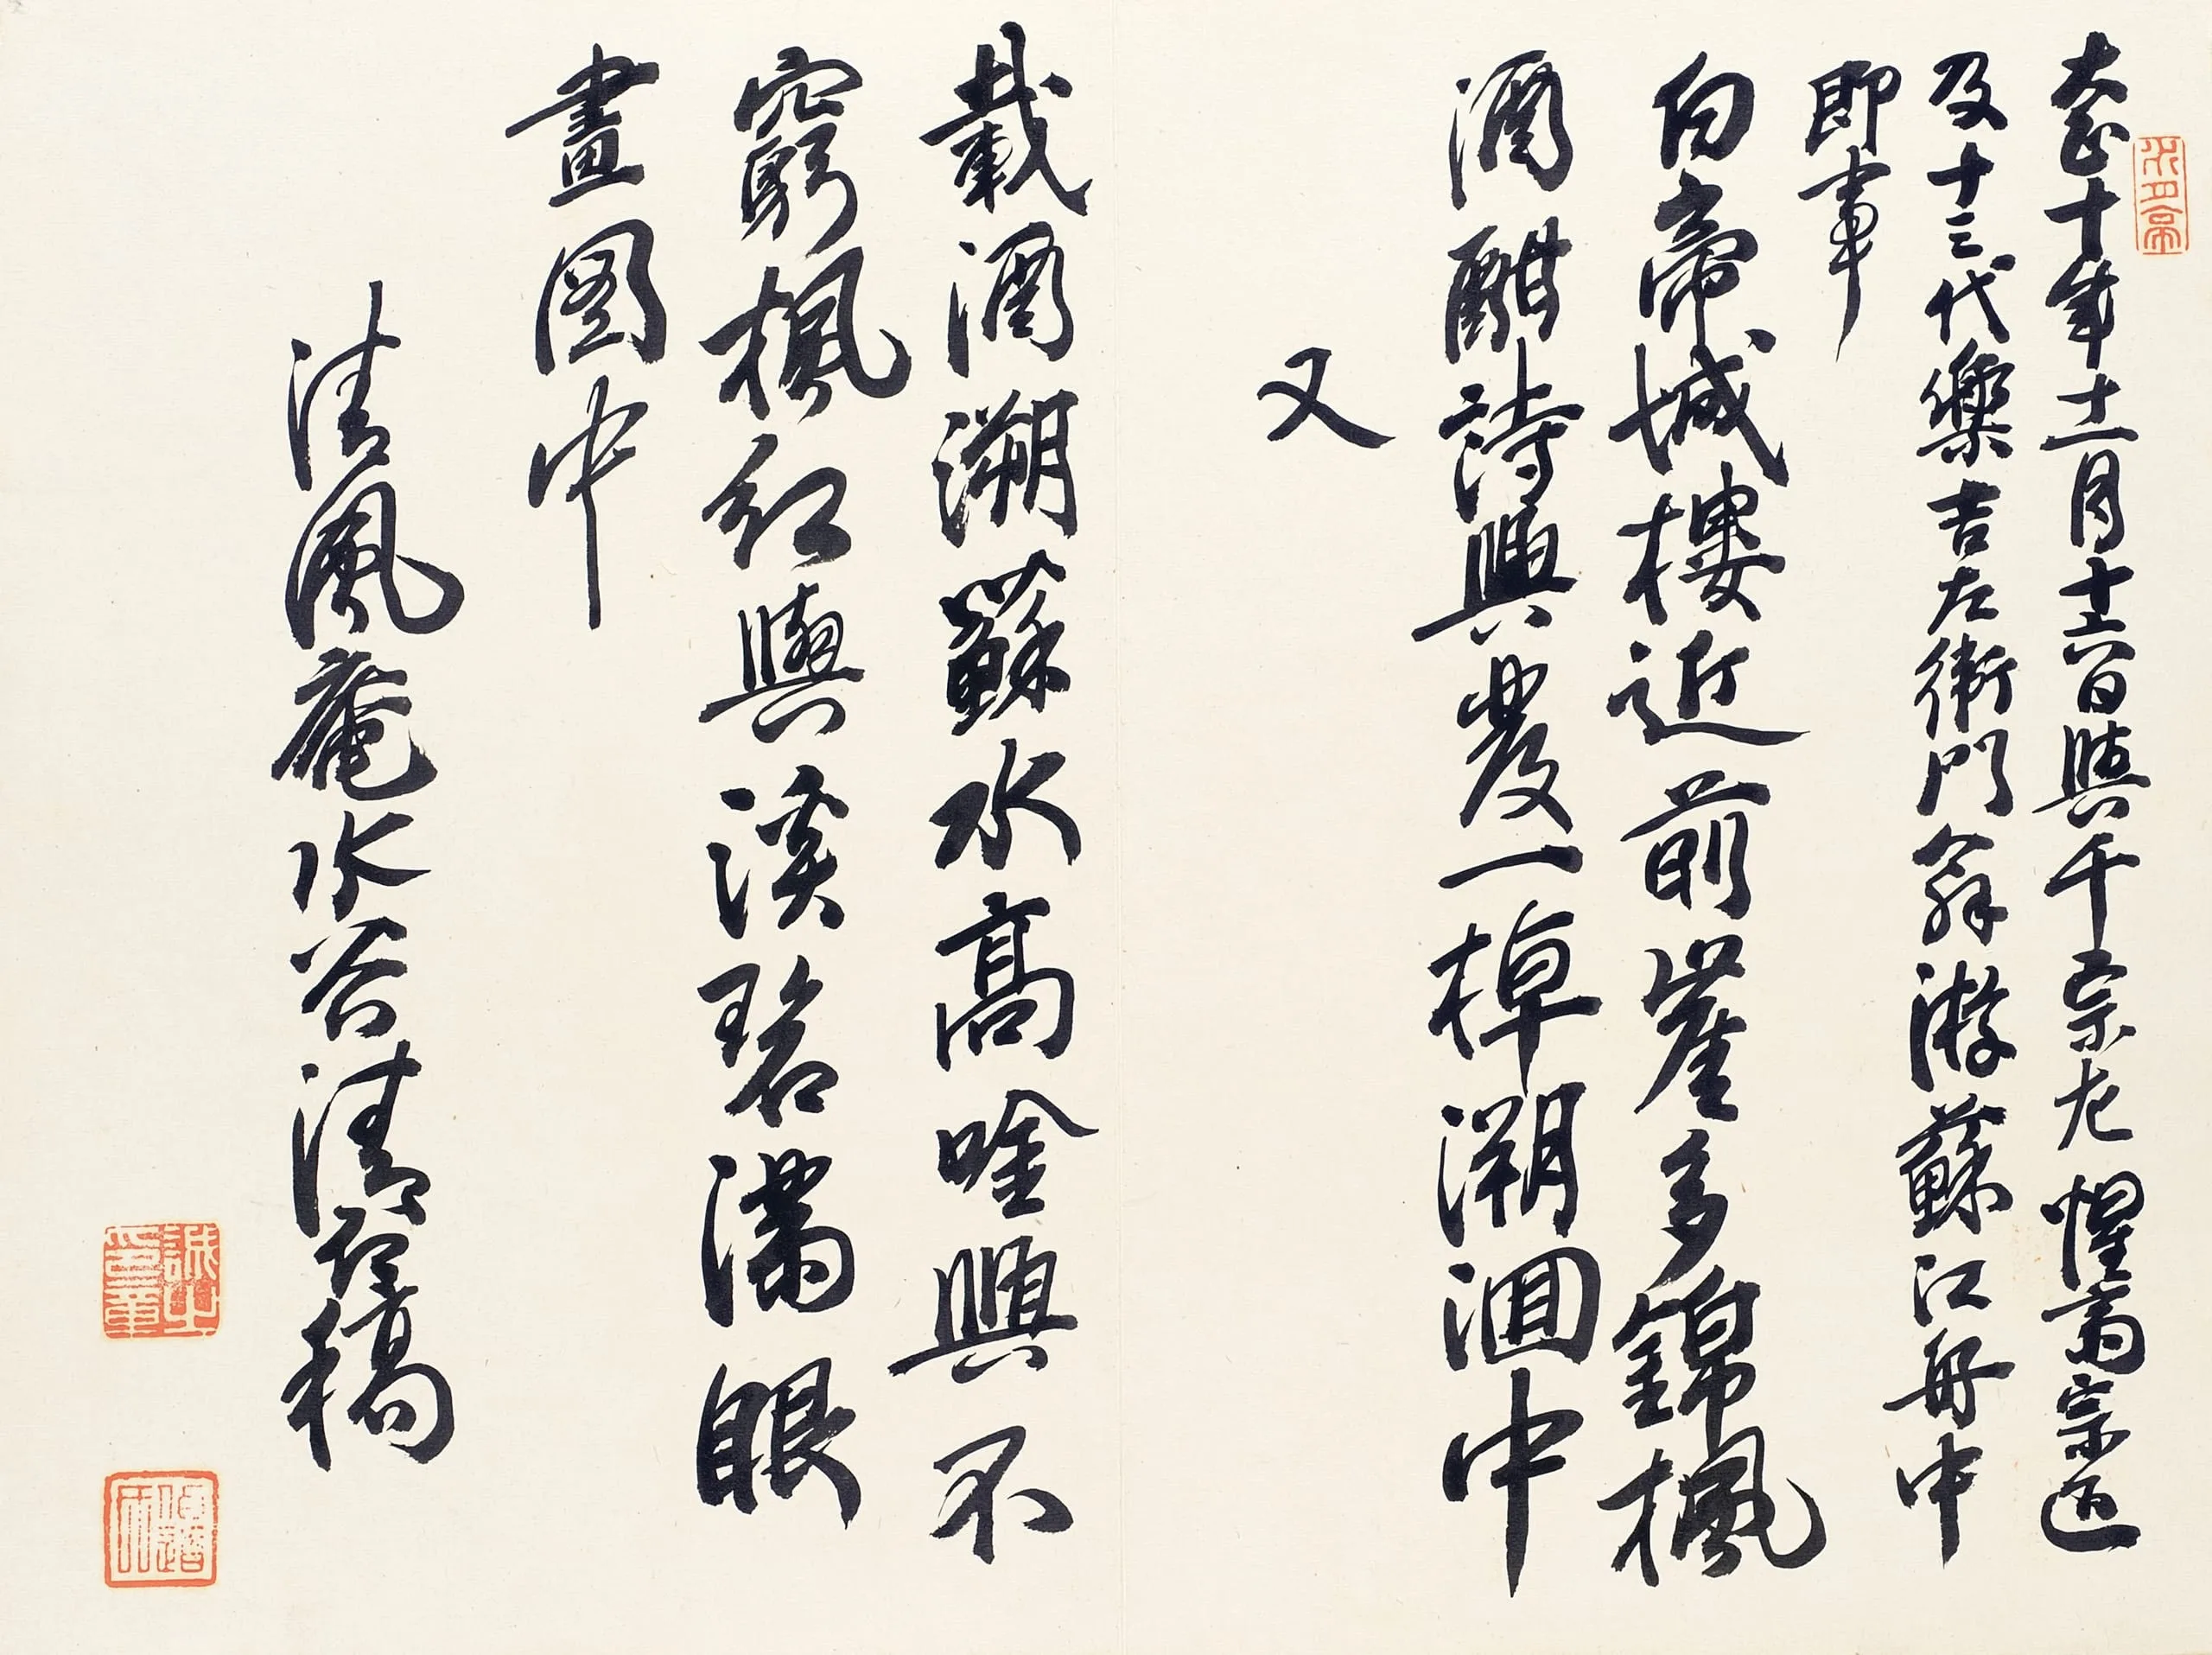 大正十年十一月十六日與千宗左惺斎宗匠
及十三代樂吉左衛門翁游蘇江舟中
即事
白帝城樓近前崖多錦楓
酒酣詩興發一棹溯洄中
又
載酒溯蘇水高吟興不
窮楓紅與溪碧滿眼
畫圖中
清風庵水谷清 稿
誠之
印章